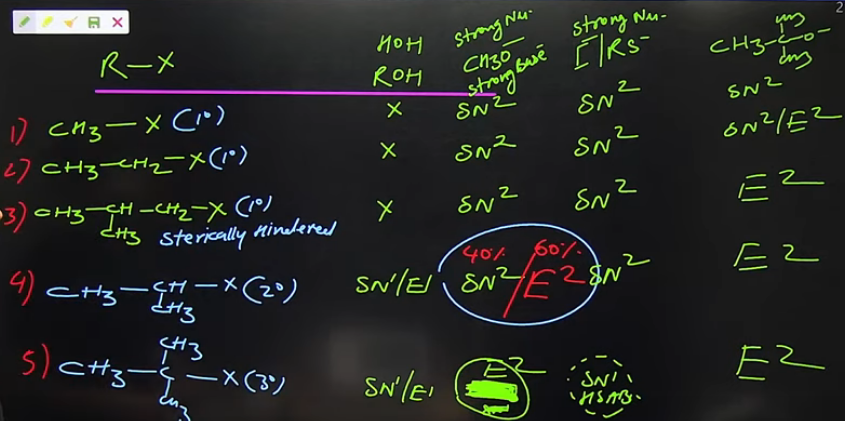 2
R-X
HOH
ROH
strong Nu-
CH3O-
strong Base
strong Nu-
I-/RS-
CH3
CH3-C-O-
CH3
1) CH3-X (1°)
X
SN2
SN2
SN2
2) CH3-CH2-X (1°)
X
SN2
SN2
SN2/E2
3) CH3-CH-CH2-X (1°)
CH3
sterically Hindered
X
SN2
SN2
E2
4) CH3-CH-X (2°)
CH3
SN1/E1
40% 60%
SN2/E2
SN2
E2
5) CH3
CH3-C-X (3°)
CH3
SN1/E1
E2
SN1
HSAB
E2